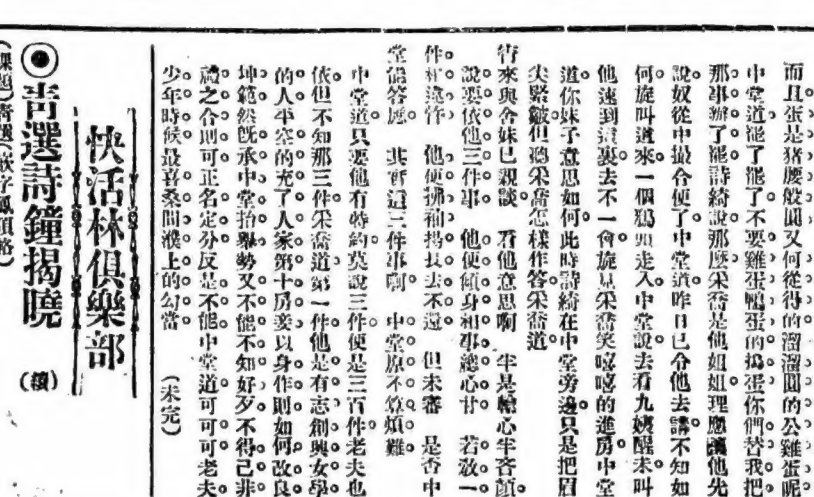 而且蛋是猪腰般圓又何從得的溜溜圓的公雞蛋呢。
中堂道罷了罷了不要雞蛋鴨蛋的搗蛋你們替我把。
那事辦了罷詩綺說那麼采喬是他姐姐理應讓他先
說奴從中撮合便了中堂道昨日已令他去講不知如
何旋叫道來一個鴉頭走入中堂說去看九姨醒未叫
他速到這裏去不一會旋見采喬笑嘻嘻的進房中堂
道你妹子意思如何此時詩綺在中堂旁邊只是把眉
尖緊皺但聽采喬怎樣作答采喬道。
宵來與舍妹已親談。看他意思啊 半是輸心半吝顏。
說要依他三件事。他便傾身相事總心甘。若放一。
件相違背 他便拂袖揚長去不還 但未審 是否中
堂能答應 其實這三件事啊 中堂原不算煩難。
中堂道只要他有特約莫說三件便是三百件老夫也
依但不知那三件采喬道第一件他是有志創興女學
的人平空的充了人家第十房妾以身作則如何改良。
坤範然既承中堂抬舉勢又不能不知好歹不得已非
禮之合則可正名定分反是不能中堂道可可可老夫。
少年時候最喜桑間濮上的勾當。 (未完)
快活林俱樂部
◉青選詩鐘揭曉 (續)
(課題)青選(嵌字鳳頂格)